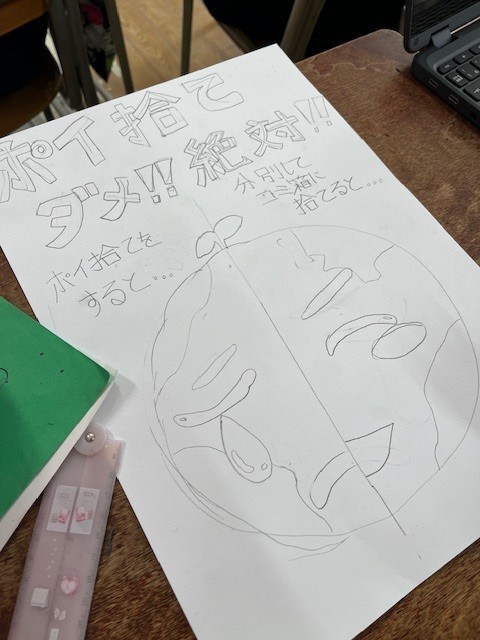 ポイ捨て
ダメ!! 絶対!!
ポイ捨てを
すると...
分別して
ゴミ箱に
捨てると...